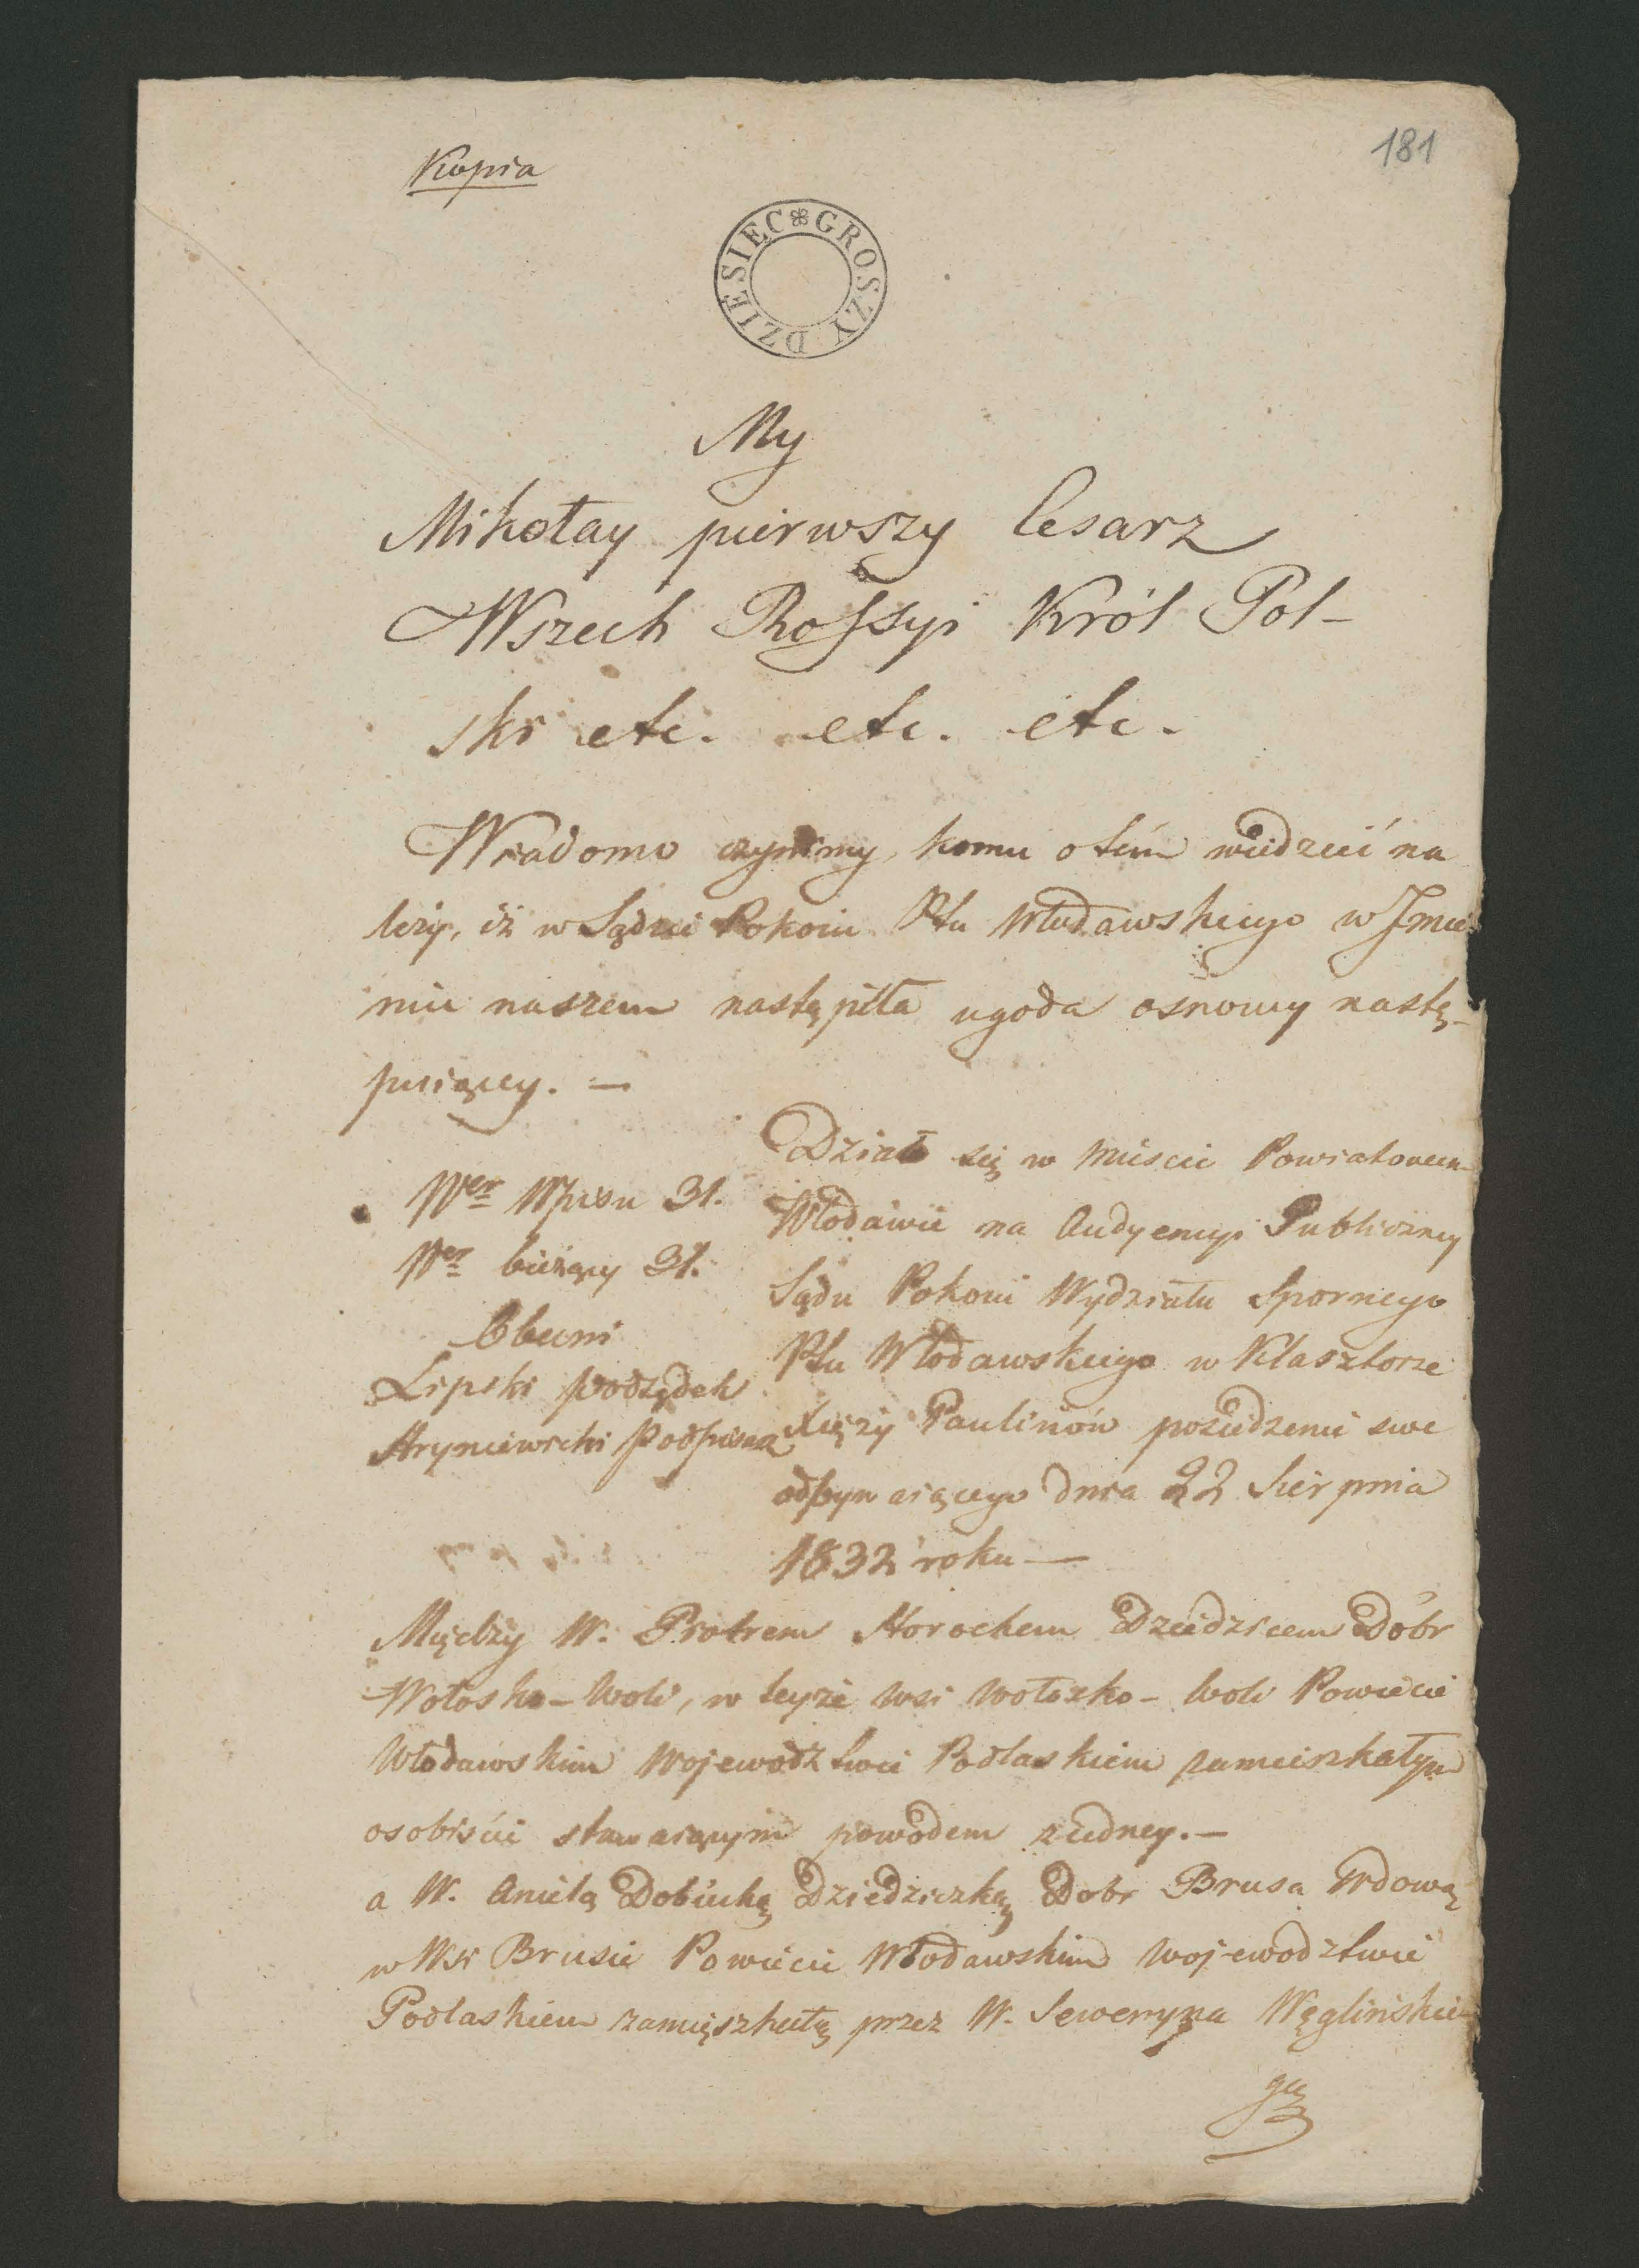 181
Kopia
GROSZY DZIESIĘC
My
Mikołay pierwszy Cesarz
Wszech Rossyi Król Pol-
ski etc. etc. etc.
Wiadomo czynimy, komu o tém wiedzieć na
leży, iż w Sądzie Pokoiu Ptu Włodawskiego w Jmie
niu naszem nastąpiła ugoda osnowy nastę-
puiącey. —
Ner Wpisu 31.
Ner bieżący 31.
Obecni
Lipski Podsędek
Hryniewicki Podpisarz
Działo się w Mieście Powiatowem
Włodawie na Audyencyi Publiczney
Sądu Pokoiu Wydziału Spornego
Ptu Włodawskiego w Klasztorze
Xięży Paulinów posiedzenie swe
odbywaiącego dnia 22 Sierpnia
1832 roku —
Między W. Piotrem Horochem Dziedzicem Dóbr
Wołosko-Woli, w teyże wsi Wołosko-Woli Powiecie
Włodawskim Województwie Podlaskiem zamieszkałym
osobiście stawaiącym powodem z iedney. —
a W. Anielą Dobiecką Dziedziczką Dobr Brusa Wdową
w Wsi Brusie Powiecie Włodawskim Województwie
Podlaskiem zamięszkałą przez W. Seweryna Węglińskie
go